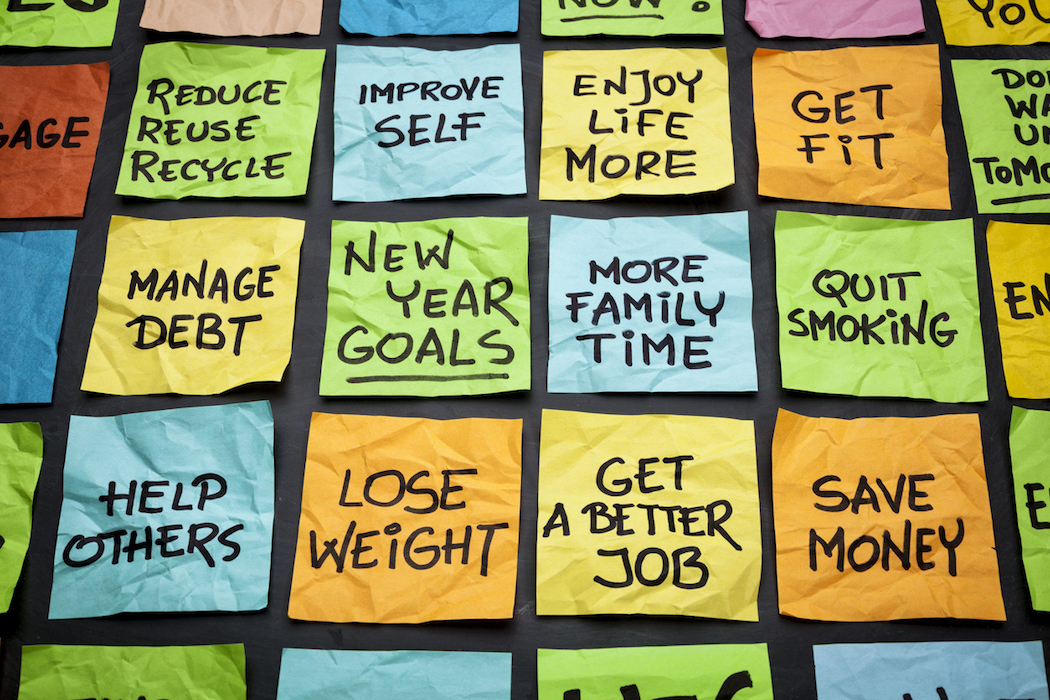 NOW!
YOU
GAGE
REDUCE
REUSE
RECYCLE
IMPROVE
SELF
ENJOY
LiFE
MORE
GET
FiT
DON
WA
UN
TOMO
MANAGE
DEBT
NEW
YEAR
GOALS
MORE
FAMiLY
TiME
QUIT
SMOKiNG
EN
HELP
OTHERS
LOSE
WEiGHT
GET
A BETTER
JOB
SAVE
MONEY